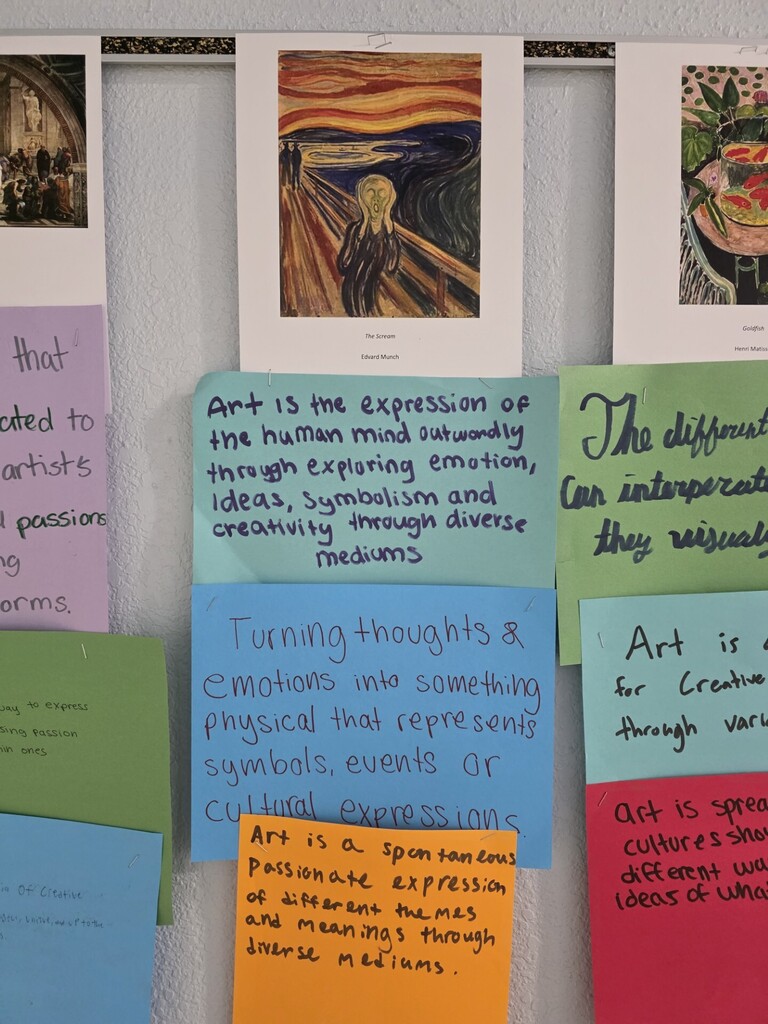 The Scream
Edvard Munch
Goldfish
Henri Matiss
that
ated to
artist's
passions
ng
orms.
Art is the expression of
the human mind outwordly
through exploring emotion,
Ideas, symbolism and
creativity through diverse
mediums
The different
Can interperate
they visualy
Turning thoughts &
emotions into something
physical that represents
symbols, events or
cultural expressions.
Art is
for Creative
through vari
way to express
sing passion
hin ones
Art is a spontaneous
passionate expression
of different themes
and meanings through
diverse mediums.
art is sprea
cultures sho
different wa
ideas of wha
Of Creative